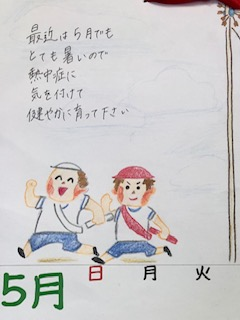 最近は5月でも
とても暑いので
熱中症に
気を付けて
健やかに育って下さい
5月 日 月 火